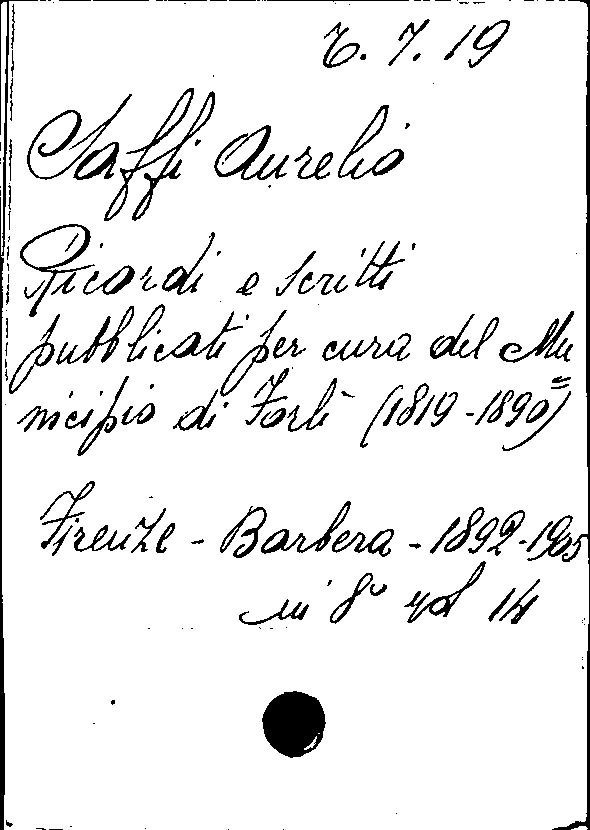 7.19
Saffi Aurelio
Ricordi e scritti
pubblicati per cura del Mu=
nicipio di Forlì (1819-1890)
Firenze - Barbera - 1892-1905
in 8° vol 14